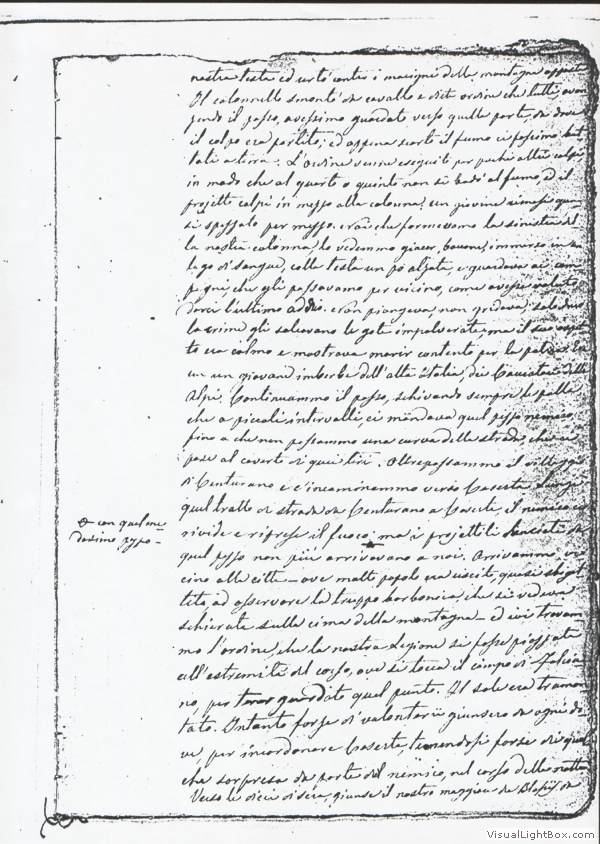 nostra testa ed urtò contro i macigni della montagna
Il colonnello smontò da cavallo e diè ordine che tutti, avan
zando il passo, avessimo guardato verso quella parte, da dove
il colpo era partito; ed appena scorto il fumo ci fossimo but
tati a terra. L'ordine venne eseguito per pochi altri colpi
in modo che al quarto o quinto non si badò al fumo ed il
projetto colpì in mezzo alla colonna; un giovine rimase qua
si spezzato per mezzo. Noi che formavamo la sinistra del
la nostra colonna, lo vedemmo giacer, bocone, immerso in un
lago di sangue, colla testa un pò alzata, e guardava ai com
pagni, che gli passavamo per vicino, come avesse voluto
darci l'ultimo addio. Non piangeva, non gridava; solo due
lacrime gli solcavano le gote impolverate, ma il suo aspet
to era calmo e mostrava morir contento per la patria. Era
un giovane imberbe dell'alta Italia, dei Cacciatori delle
Alpi. Continuammo il passo, schivando sempre le palle
che a piccoli intervalli, ci mandava quel pezzo nemico,
fino a che non passammo una curva della strada, che ci
pose al coverto di quei tiri. Oltrepassammo il villaggio
di Centurano e c'incaminammo verso Caserta. Lungo
quel tratto di strada da Centurano a Caserta, il nemico ci
rivide e riprese il fuoco; ma i projettili lanciati da
⊕ con quel me
desimo pezzo -
quel pezzo non più arrivavano a noi. Arrivammo vi
cino alla città - ove molto popolo era uscito, quasi sbigot
tito, ad osservare la truppa borbonica, che si vedeva
schierata sulla cima della montagna - ed ivi trovam
mo l'ordine, che la nostra Legione si fosse piazzata
all'estremità del corso, ove si tocca il campo di Falcia
no, per tener guardato quel punto. Il sole era tramon
tato. Intanto forze di volontarii giunsero da ogni do
ve, per incordonare Caserta, temendosi forse di qual
che sorpresa da parte del nemico, nel corso della notte
Verso le dieci di sera, giunse il nostro maggiore de Blasiis, da
VisualLightBox.com